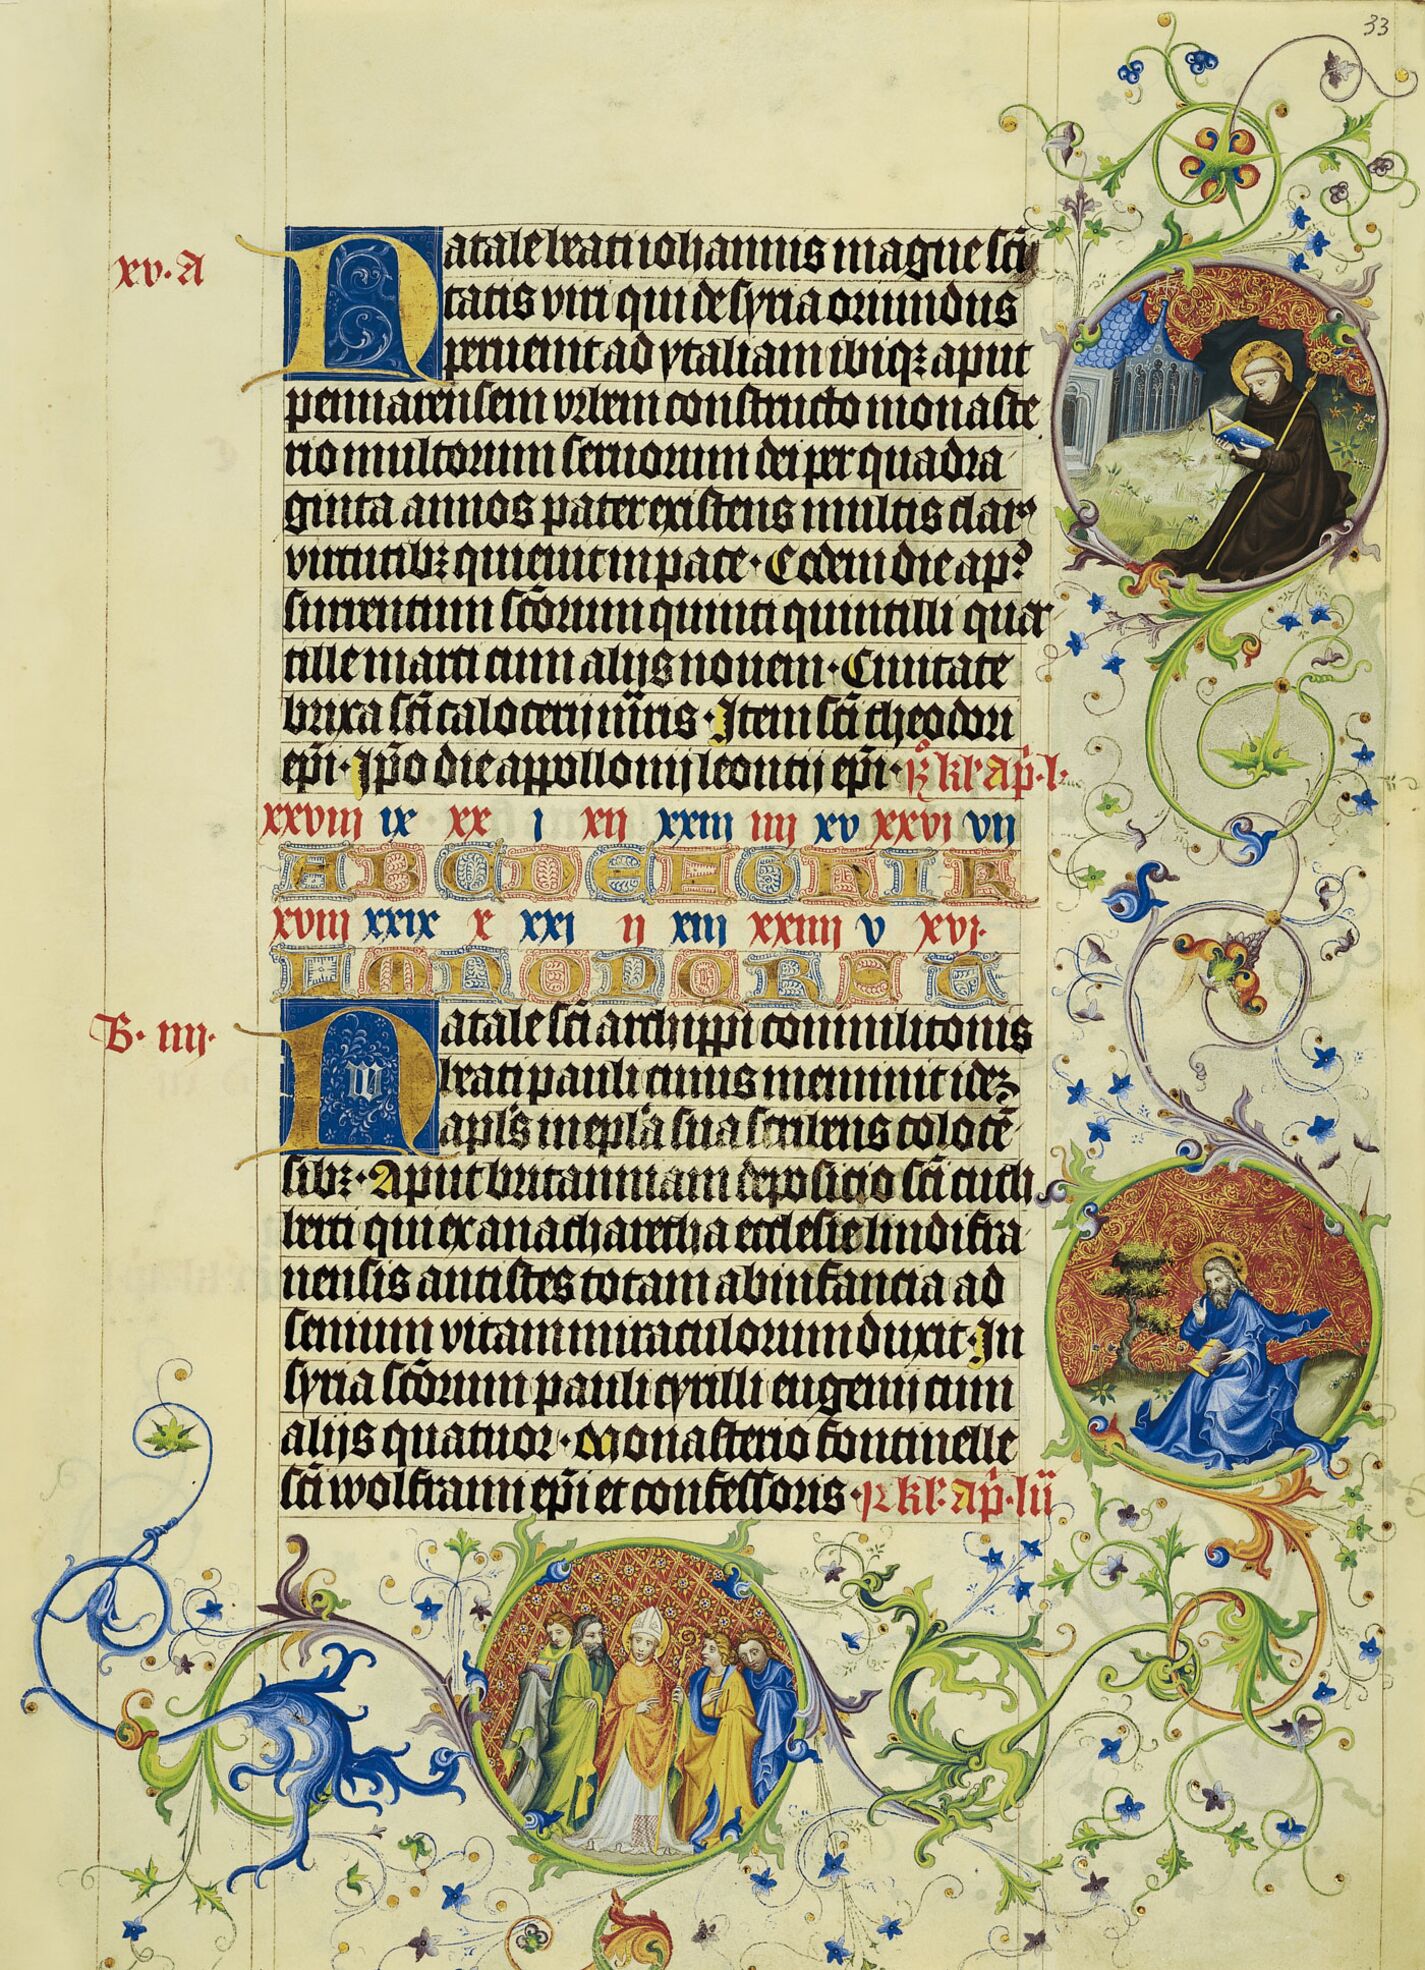 33
xv. A
Natale beati iohannis magne scti
tatis viri qui de syria oriundus
peruenit ad ytaliam ibiqꝫ aput
pennarensem vrbem constructo monaste
rio multorum seruorum dei per quadra
ginta annos pater existens multis clarꝰ
virtutibꝫ quieuit in pace · Eodem die apꝰ
surrentum scōrum quinti quintilli quar
tille marci cum alijs nouem · Ciuitate
brixa scī caloceri mr̄is · Item scī theodori
ep̄i · Ip̄o die appollonij leoncij ep̄i · R̊ kl' ap̄ · l ·
xxviij ix xx j xij xxiij iiij xv xxvi vij
A B C D E F G H I K
xviij xxix x xxj ij xiij xxiiij v xvj·
L M N O P Q R S T
B · iiij ·
Natale scī archippi conmilitonis
beati pauli cuius meminit ideꝫ
apl's in epl'a sua scribens colocē
sibꝫ · Aput britanniam deposicio scī cuth
berti qui ex anachareta ecclesie lindifra
nensis antistes totam ab infancia ad
senium vitam miraculorum duxit · In
syria scōrum pauli cyrilli eugenij cum
alijs quatuor · Monasterio fontinelle
scī wolframi ep̄i et confessoris · R kl' ap̄ · lij